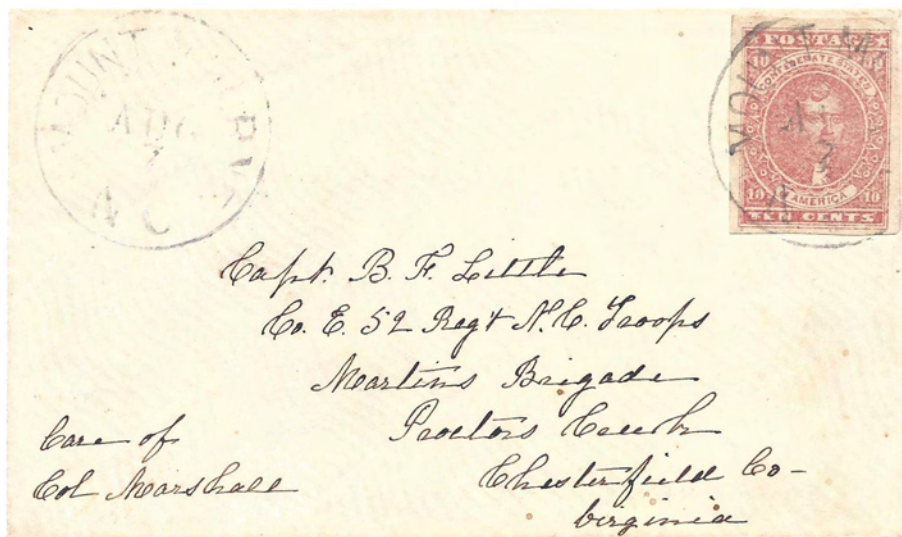 MOUNT
AUG
7
N C
POSTAGE
10
CONFEDERATE STATES
AMERICA
10 10
TEN CENTS
MOUNT
7
N
Capt. B. F. Little
Co. E. 52 Regt N.C. Troops
Martins Brigade
Proctors Creek
Chesterfield Co-
Virginia
Care of
Col Marshall